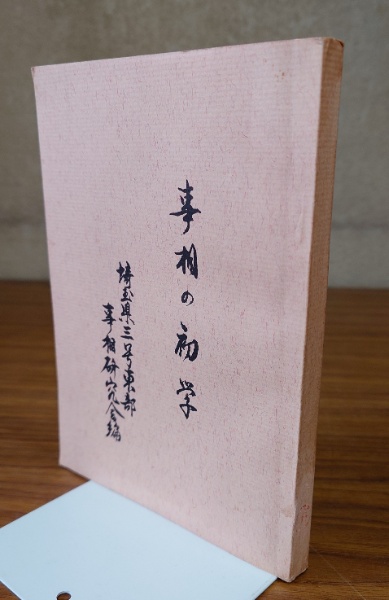 事相の初学
埼玉県三号東部
事相研究会編